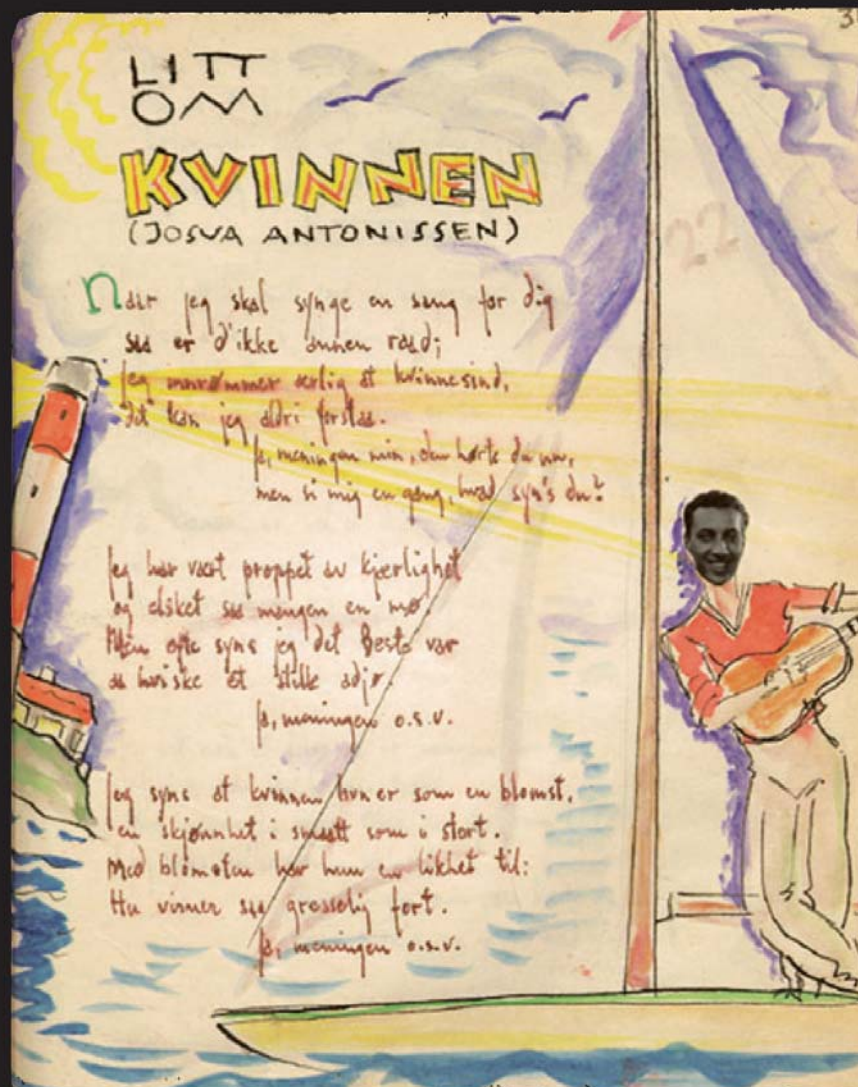 3
LITT
OM
KVINNEN
(JOSVA ANTONISSEN)
22
Naar jeg skal synge en sang for dig
saa er d'ikke annen raad;
jeg innrømmer ærlig at kvinnesind,
det kan jeg aldri forstaa.
Ja, meningen min, den hørte du nu,
men si mig en gang, hvad syn's du?
Jeg har vært proppet av kjærlighet
og elsket saa mangen en mø.
Men ofte syns jeg det Beste var
aa hviske et stille adjø.
Ja, meningen o.s.v.
Jeg syns at kvinnen hun er som en blomst,
en skjønnhet i smaatt som i stort.
Med blomsten har hun en likhet til:
Hu visner saa grosselig fort.
Ja, meningen o.s.v.